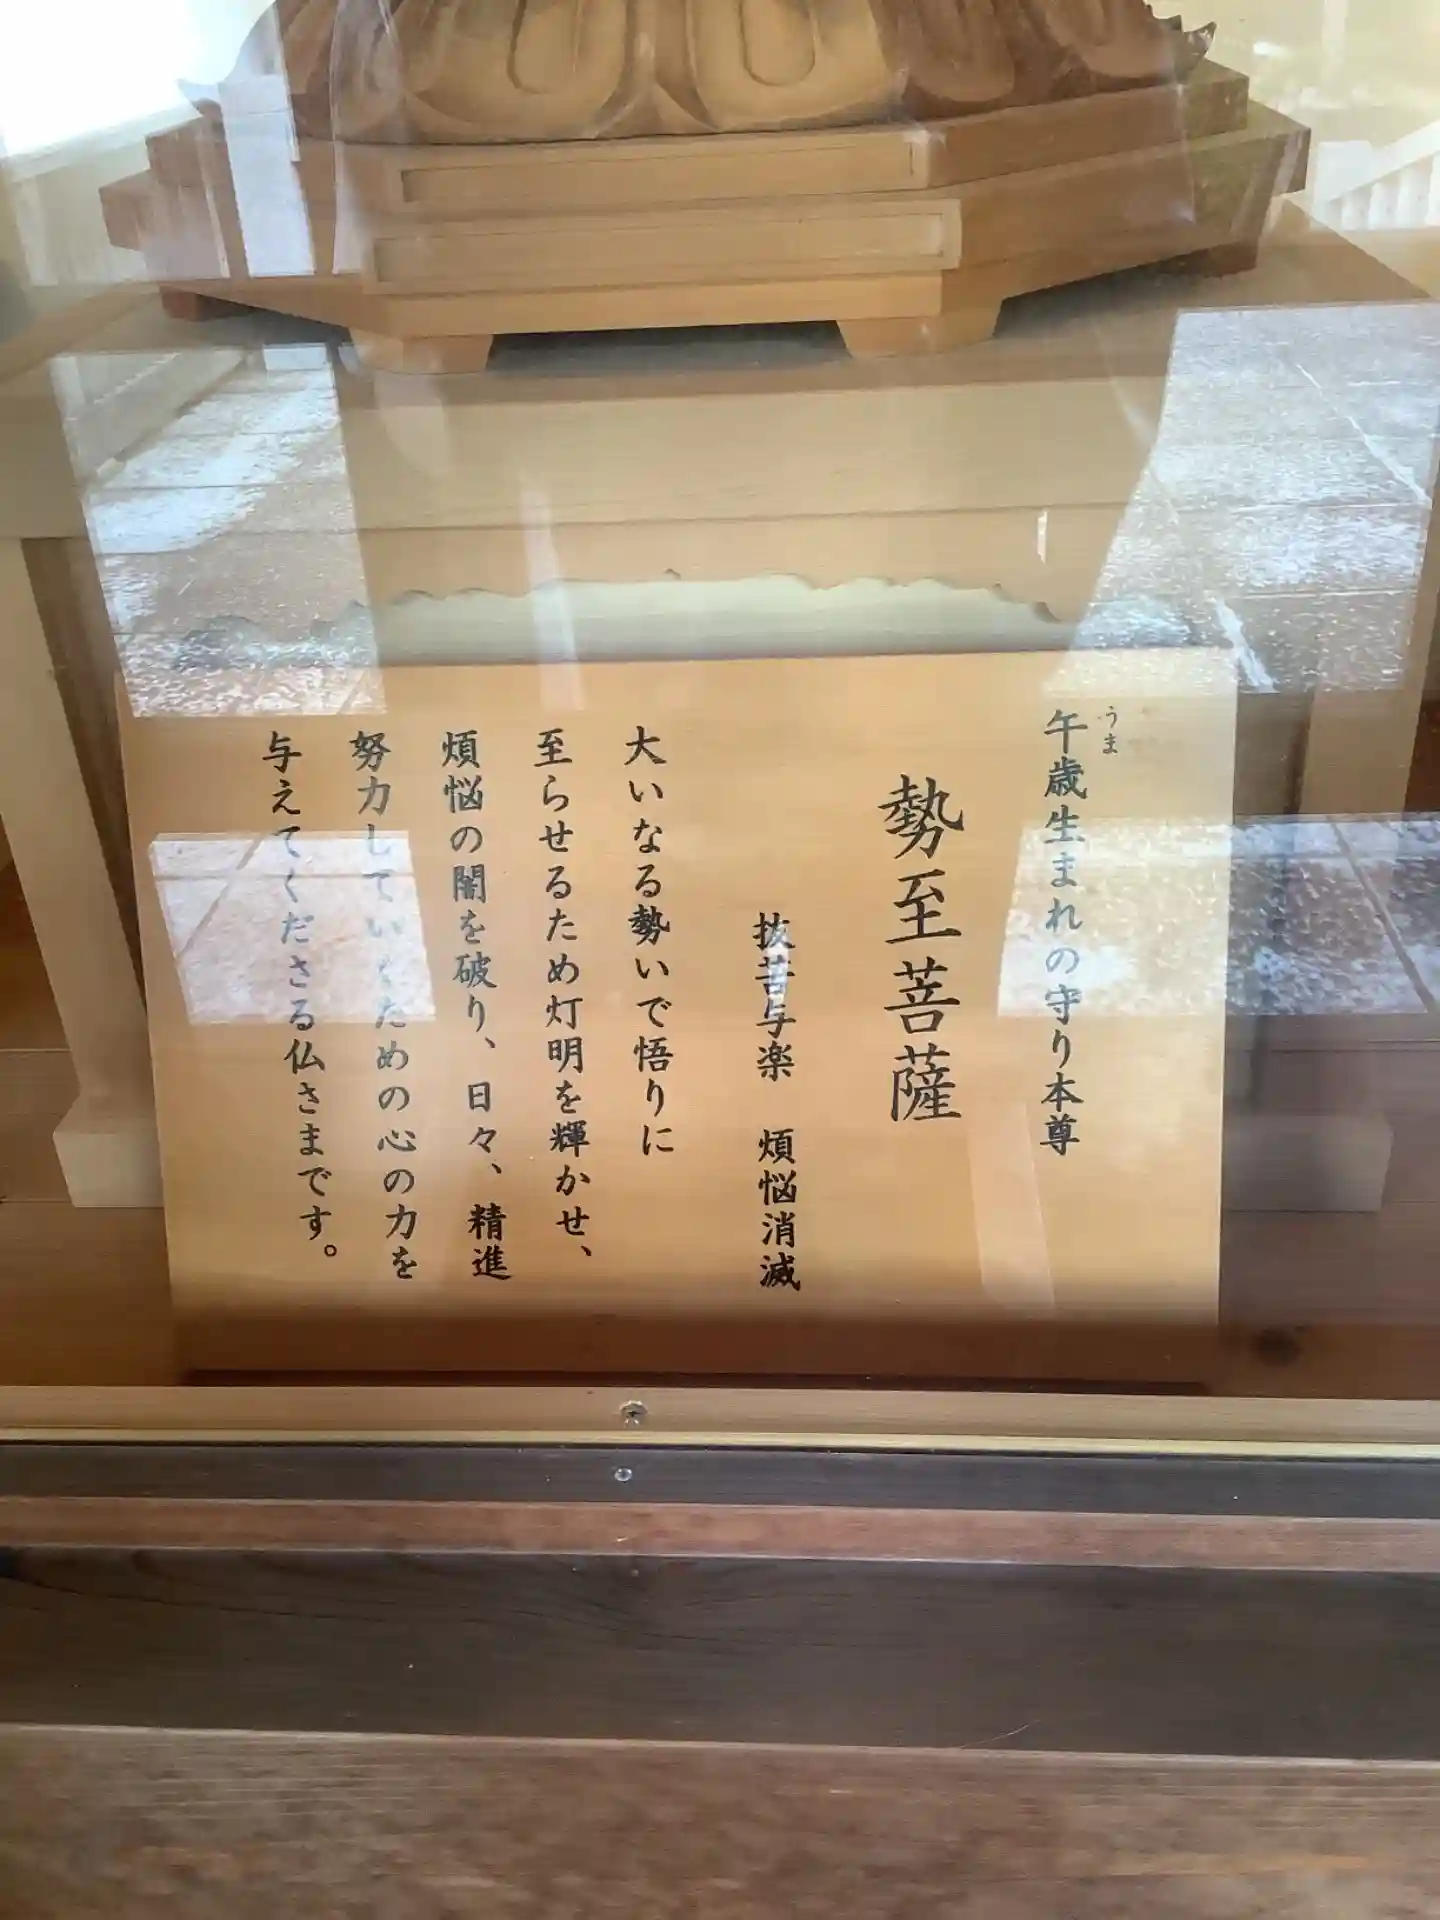 うま
午歳生まれの守り本尊
勢至菩薩
抜苦与楽　煩悩消滅
大いなる勢いで悟りに
至らせるため灯明を輝かせ、
煩悩の闇を破り、日々、精進
努力していくための心の力を
与えてくださる仏さまです。